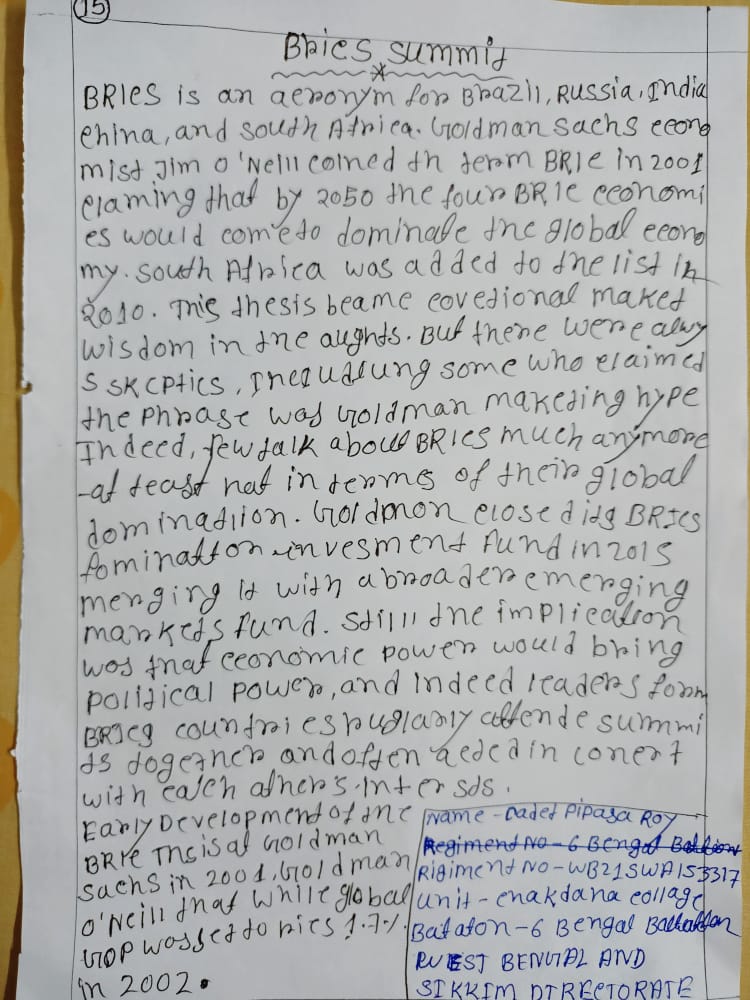 15
Brics summit
BRICS is an acronym for Brazil, Russia, India
China, and South Africa. Goldman Sachs econo
mist Jim O'Neill coined th term BRIC in 2001
claming that by 2050 the four BRIC economi
es would come to dominate the global econo
my. South Africa was added to the list in
2010. This thesis beame covetional maket
wisdom in the aughts. But there were alwy
s skcptics, Inculdung some who claimed
the phrase was Goldman maketing hype
Indeed, few talk about BRICS much anymore
-at teast not in terms of their global
dominatiion. Goldmon closed its BRICS
fominatton invesment fund in 2015
merging it with a broader emerging
markets fund. Stilll the implication
was that economic power would bring
political power, and indeed leaders form
BRICS countries ruglarly attende summi
ts together and often acted in conert
with each other's inter sts.
Early Development of the
BRIC Thsis at Goldman
Sachs in 2001, Goldman
O'Neill that while global
GDP was set to rics 1.7%
in 2002.
Name - Cadet Pipasa Roy
Regiment No - 6 Bengal Battion
Rigiment No - WB21SWA153317
Unit - Chakdaha collage
Bataton - 6 Bengal
WEST BENGAL AND
SIKKIM DIRECTORATE